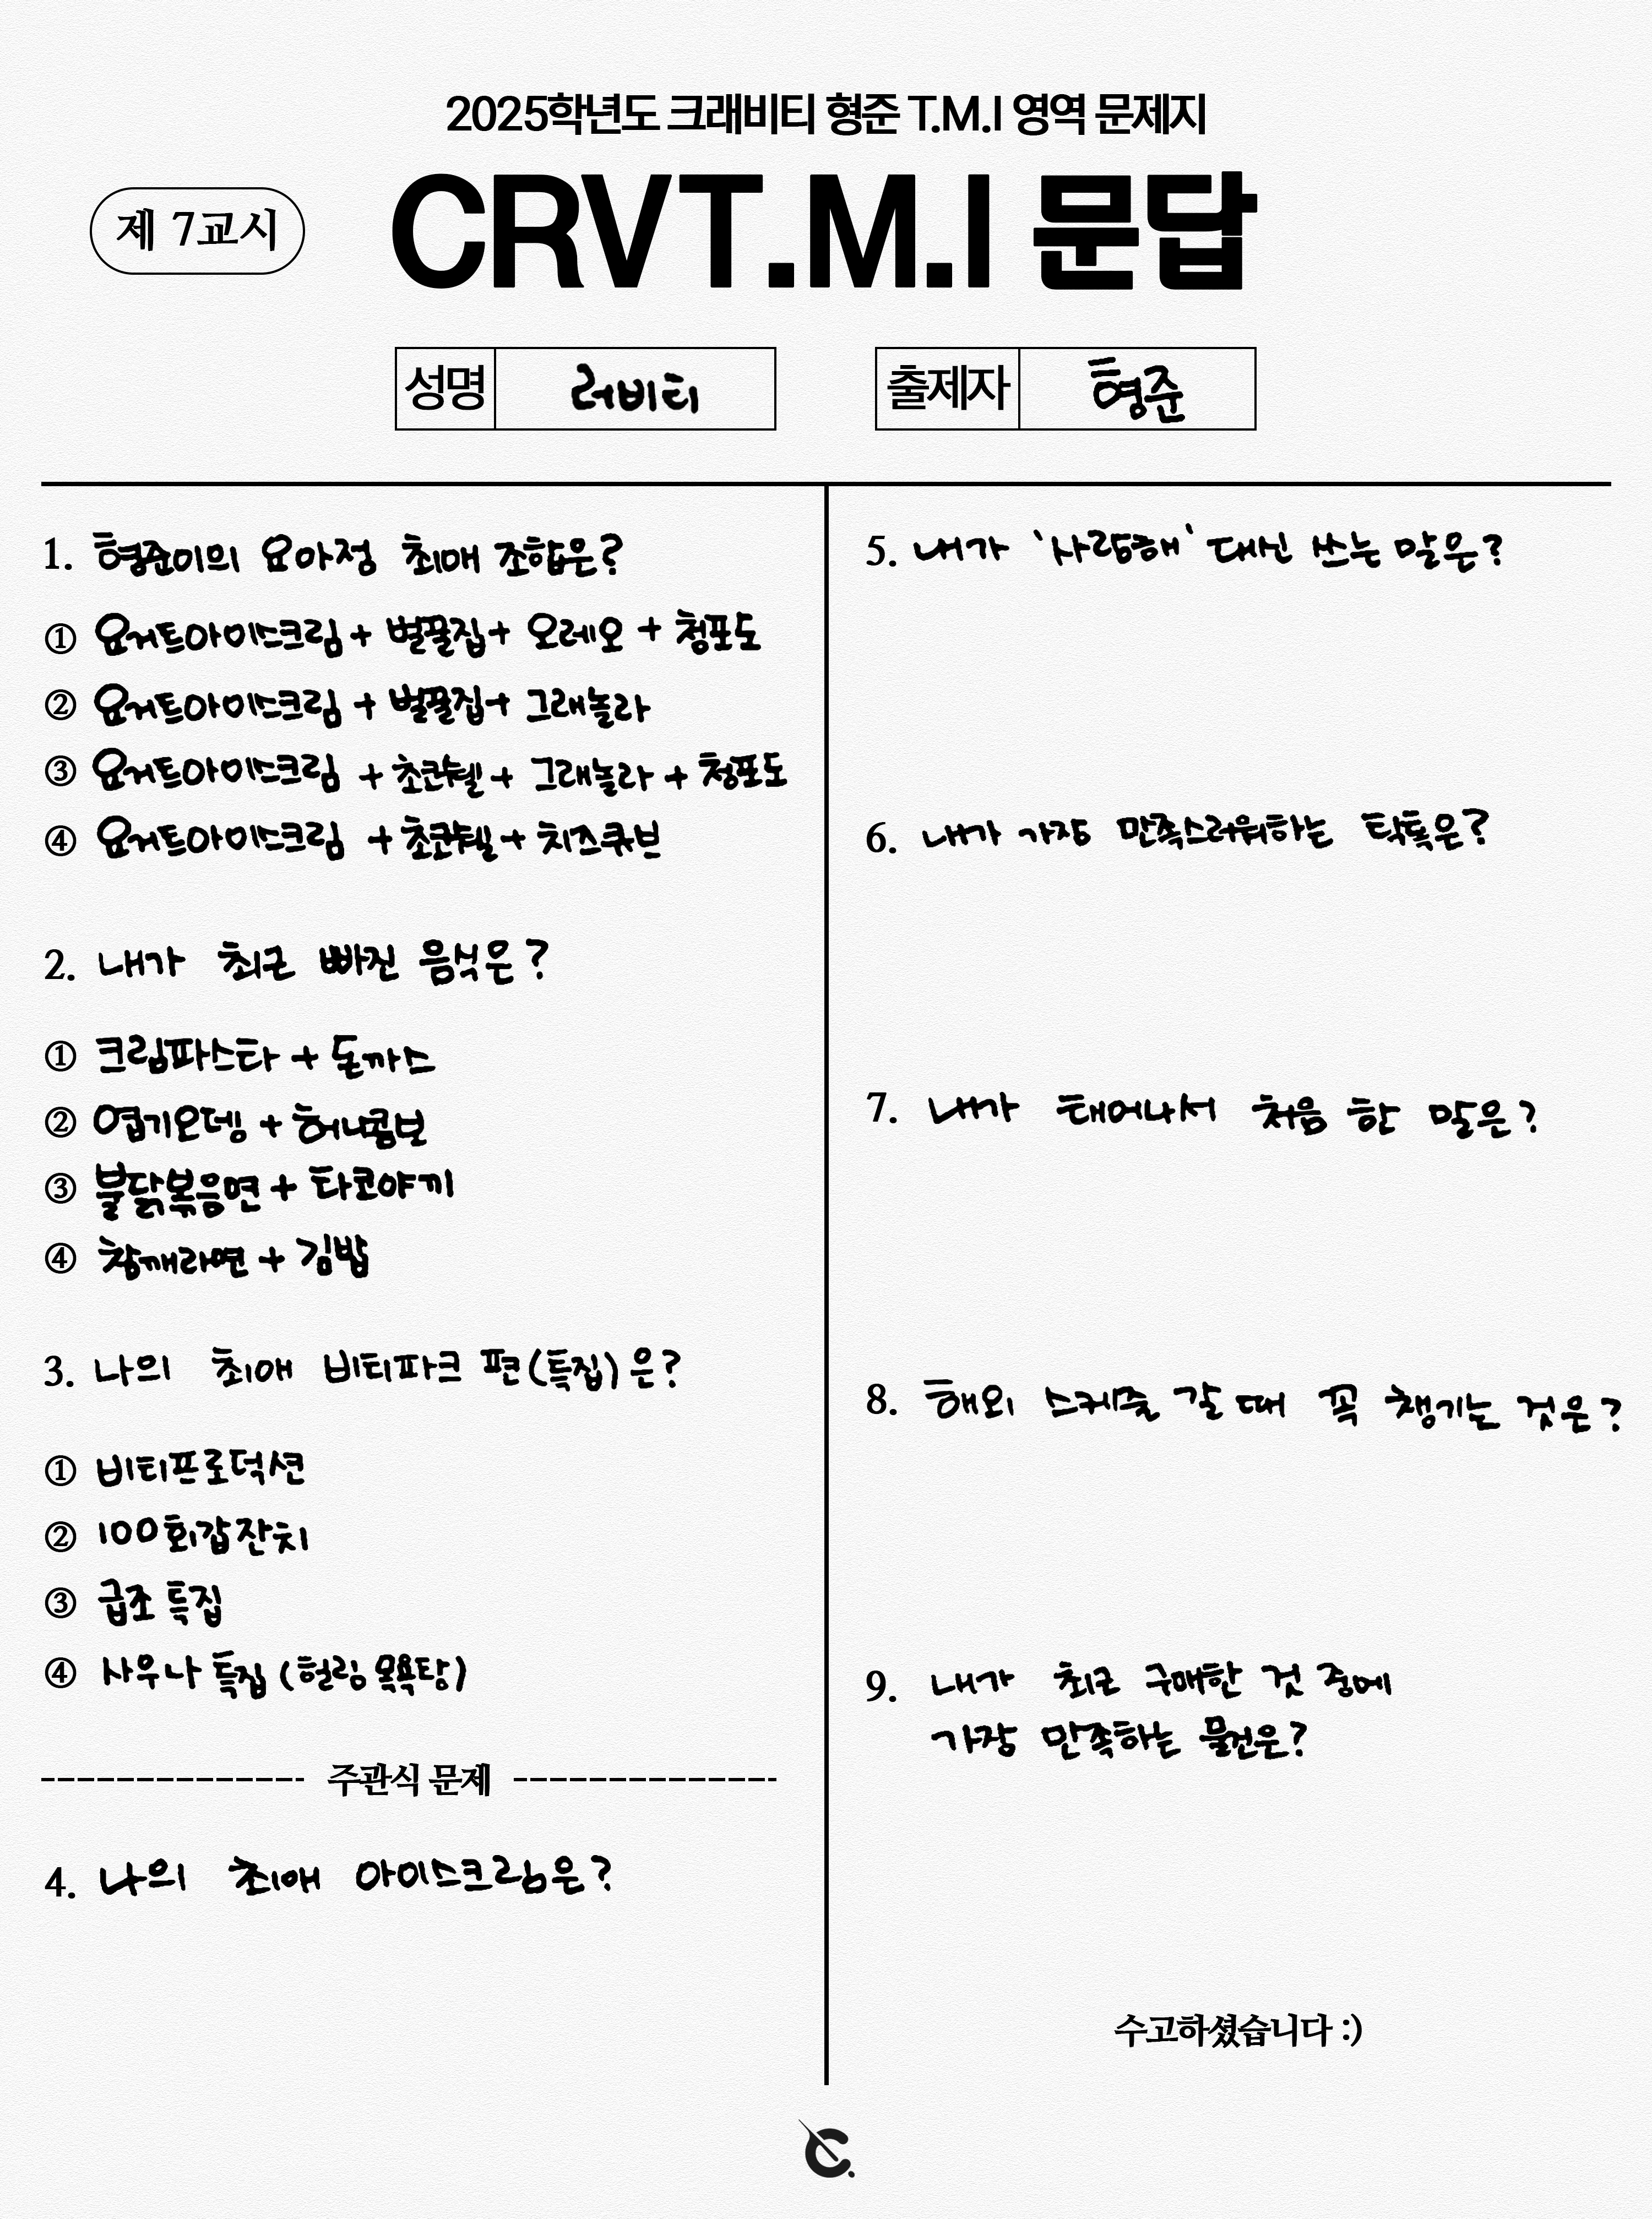 2025학년도 크래비티 형준 T.M.I 영역 문제지
제 7교시
CRVT.M.I 문답
성명 러비티
출제자 형준
1. 형준이의 요아정 최애 조합은?
① 요거트아이스크림 + 벌꿀집 + 오레오 + 청포도
② 요거트아이스크림 + 벌꿀집 + 그래놀라
③ 요거트아이스크림 + 초코쉘 + 그래놀라 + 청포도
④ 요거트아이스크림 + 초코쉘 + 치즈큐브
2. 내가 최근 빠진 음식은?
① 크림파스타 + 돈까스
② 엽기오뎅 + 허니콤보
③ 불닭볶음면 + 타코야끼
④ 참깨라면 + 김밥
3. 나의 최애 비티파크 편(특집)은?
① 비티프로덕션
② 100회갑잔치
③ 급조 특집
④ 사우나 특집 (헐링 목욕탕)
주관식 문제
4. 나의 최애 아이스크림은?
5. 내가 '사랑해' 대신 쓰는 말은?
6. 내가 가장 만족스러워하는 틱톡은?
7. 내가 태어나서 처음 한 말은?
8. 해외 스케줄 갈 때 꼭 챙기는 것은?
9. 내가 최근 구매한 것 중에
가장 만족하는 물건은?
수고하셨습니다 :)